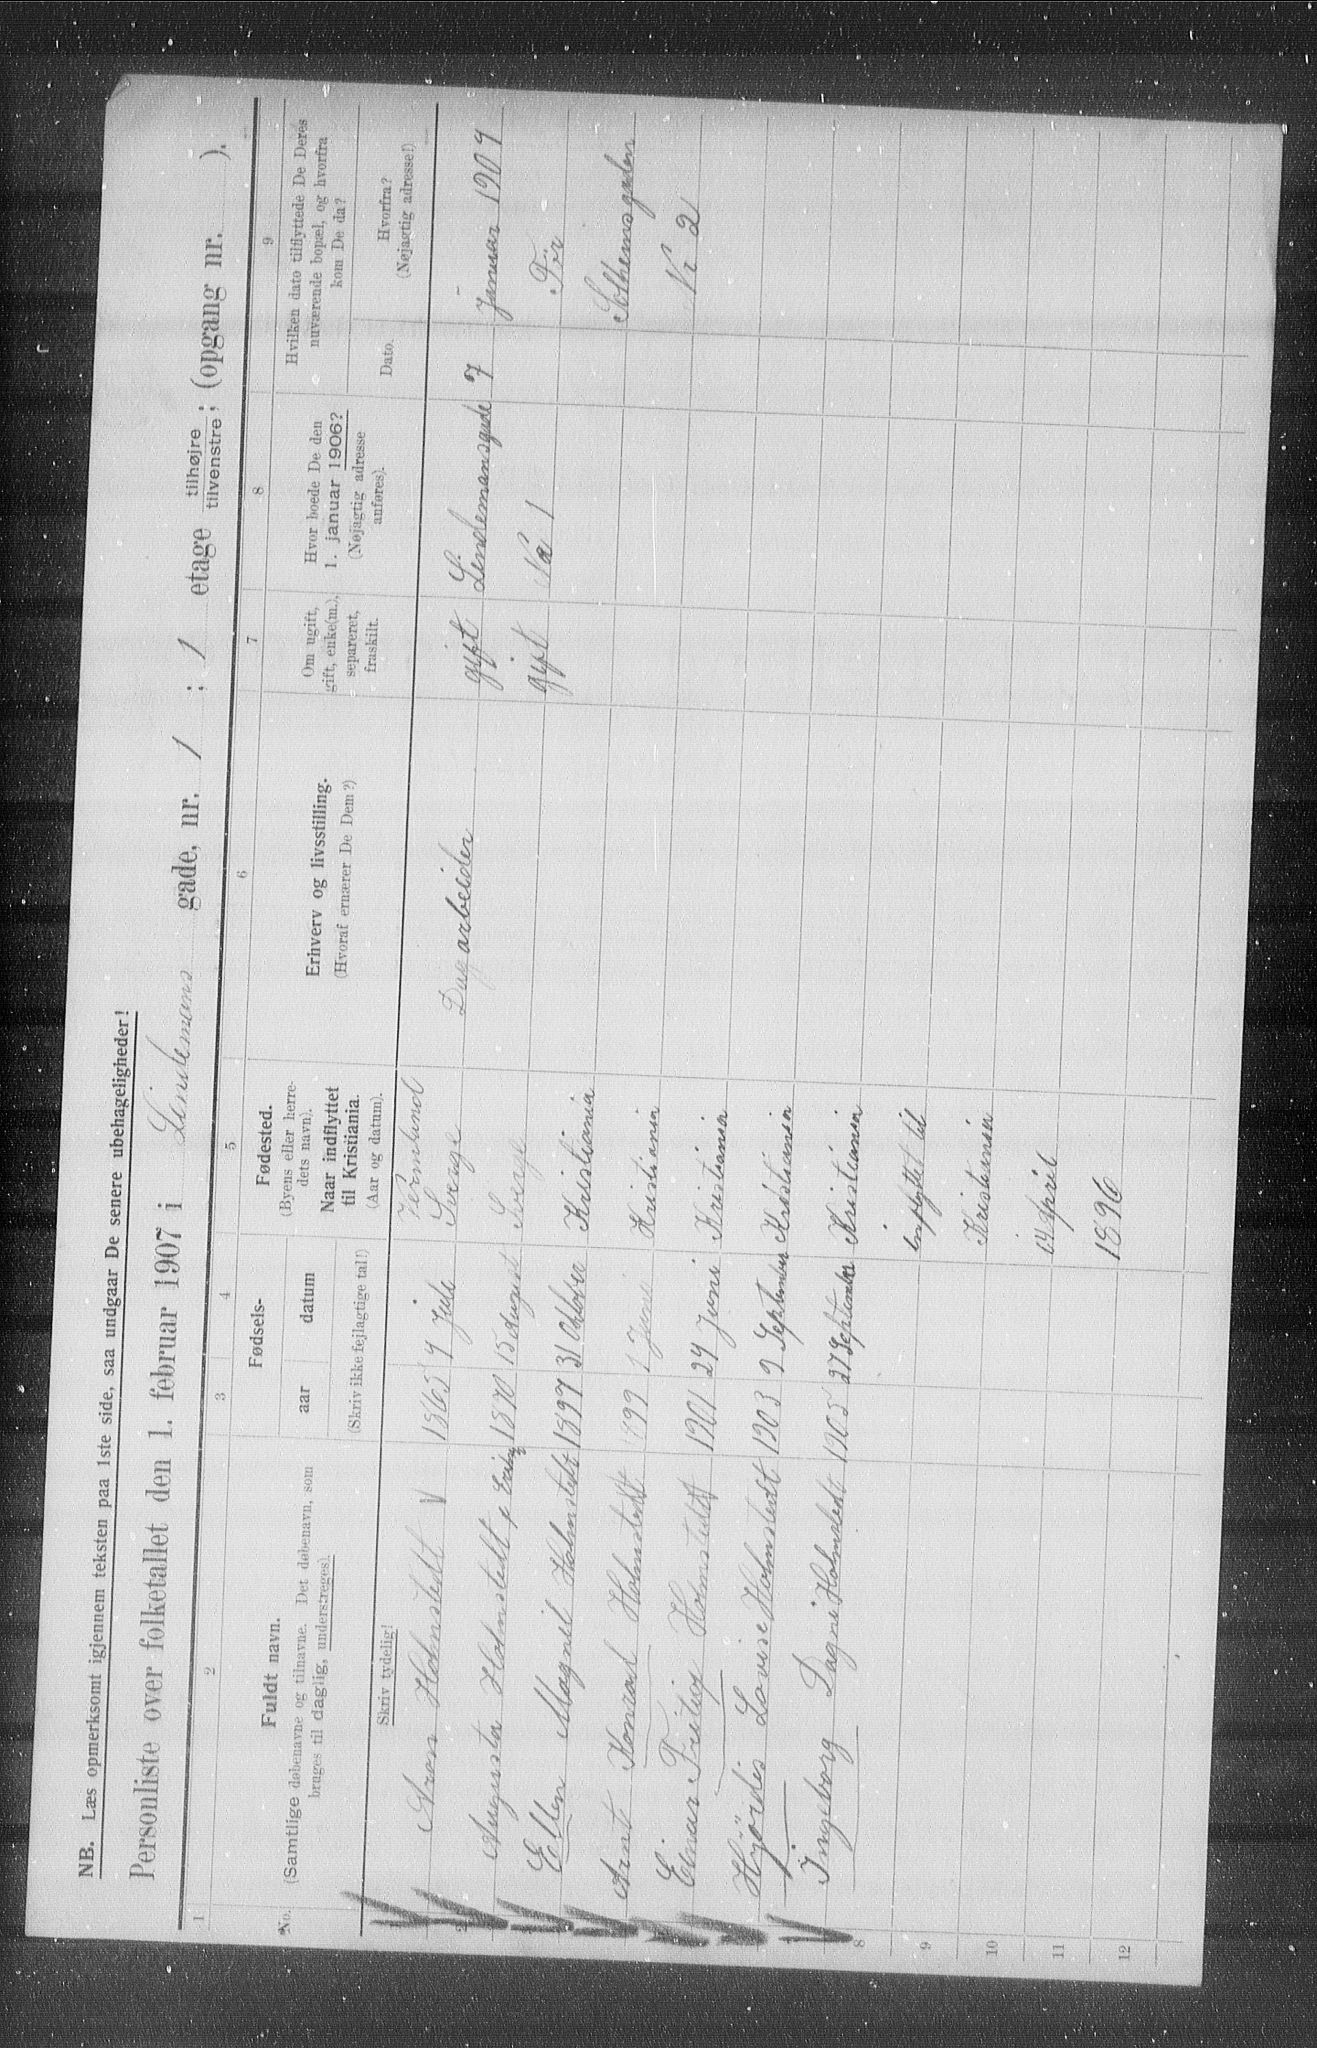 NB. Læs opmerksomt igjennem teksten paa 1ste side, saa undgaar De senere ubehageligheder!
Personliste over folketallet den 1. februar 1907 i Lindemans gade, nr. 1 ; 1 etage tilhøjre / tilvenstre ; (opgang nr. ).
1 2 3 4 5 6 7 8 9
No.
Fuldt navn.
(Samtlige døbenavne og tilnavne. Det døbenavn, som
bruges til daglig, understreges).
Skriv tydelig!
Fødsels-
aar datum
(Skriv ikke fejlagtige tal!)
Fødested.
(Byens eller herre-
dets navn).
Naar indflyttet
til Kristiania.
(Aar og datum).
Erhverv og livsstilling.
(Hvoraf ernærer De Dem?)
Om ugift,
gift, enke(m.),
separeret,
fraskilt.
Hvor boede De den
1. januar 1906?
(Nøjagtig adresse
anføres).
Hvilken dato tilflyttede De Deres
nuværende bopæl, og hvorfra
kom De da?
Dato.
Hvorfra?
(Nøjagtig adresse!)
Vermland
Aron Holmstedt 1865 4 Juli Sverge Dagarbeider gift Lindemansgade 7 Januar 1904
Augusta Holmstedt 1870 15 August Sverge gift No 1 Fra
Ellen Magnil Holmstedt 1897 31 Oktober Kristiania
Arnt Konrad Holmstedt 1899 1 Juni Kristiania
Einar Filip Holmstedt 1901 24 Juni Kristiania Nr 2
Hjørdis Lovise Holmstedt 1903 9 September Kristiania
Ingeborg Dagni Holmstedt 1905 27 September Kristiania
8 inflyttet til
9 Kristiania
10 April
11 1896
12